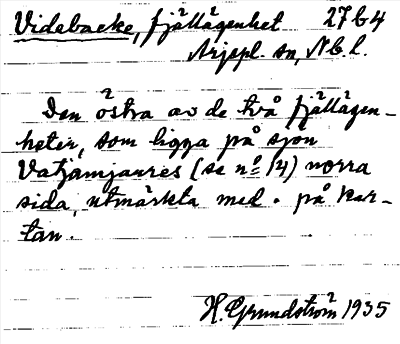 Videbacke, fjällägenhet 27b4
Arjepl. sn, Nb. l.
Den östra av de två fjällägen-
heter, som ligga på sjön
Vatjämjaures (se nº 14) norra
sida, utmärkta med . på kar-
tan.
H. Grundström 1935